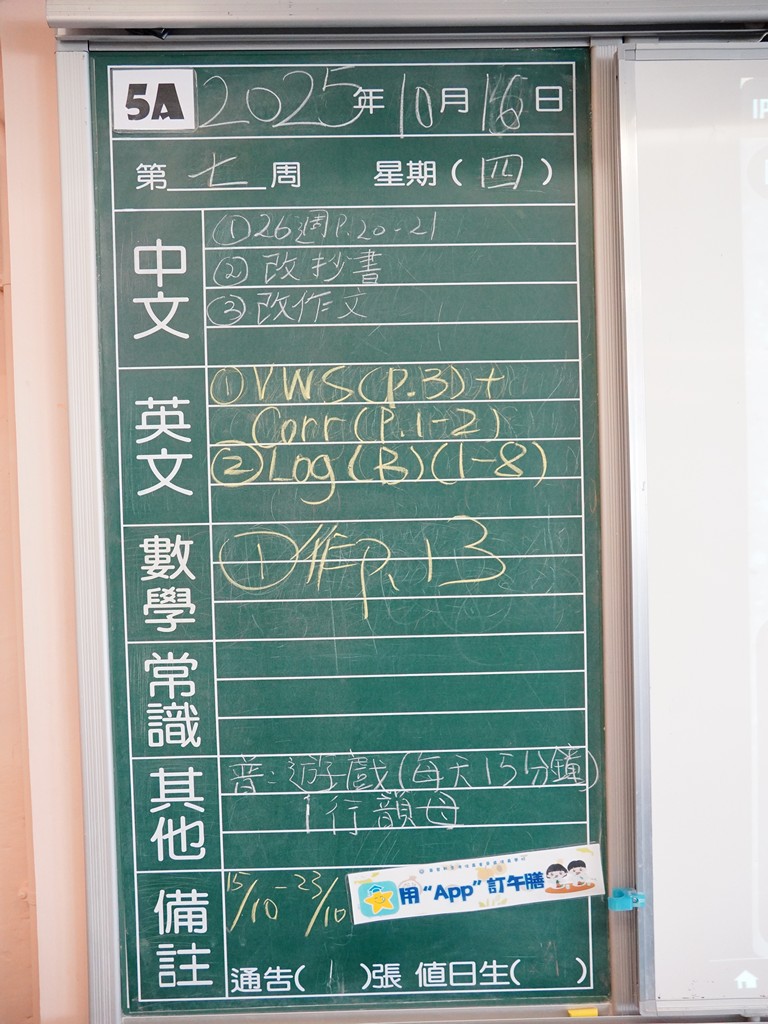 5A 2025年10月16日
第七周 星期(四)
中文
①26週P.20-21
②改抄書
③改作文
英文
①VWS(P.3)+
Corr(P.1-2)
②Log(B)(1-8)
數學
①作P.13
常識
其他
普：遊戲(每天15分鐘)
1行韻母
備註
15/10-23/10
用“App”訂午膳
通告(1)張 值日生( )
IP